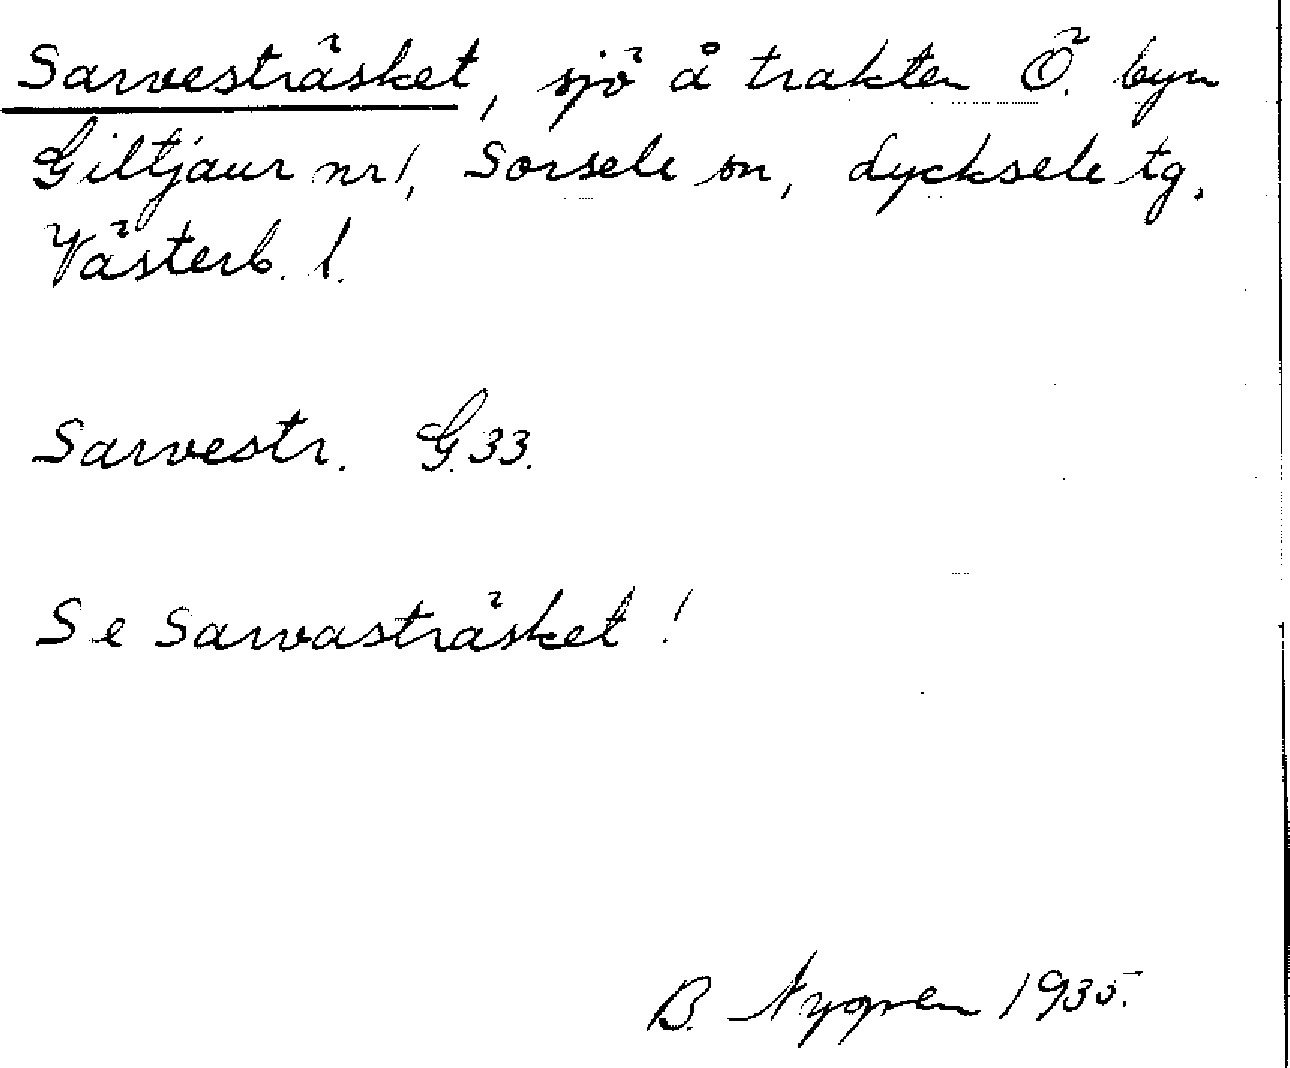 Sarvesträsket, sjö å trakten Ö. byn
Giltjaur nr 1, Sorsele sn, Lycksele tg.
Västerb. l.
Sarvestr. G.33.
Se Sarvasträsket!
B. Nygren 1935.